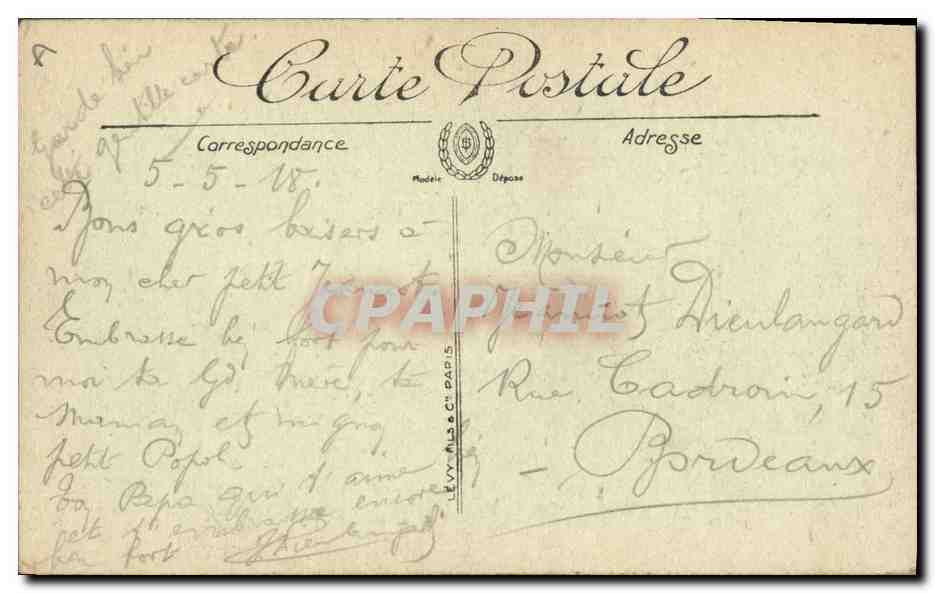 Carte Postale
Correspondance
Adresse
Modèle Déposé
Garde bien
cette gentille carte
5-5-18.
Bons gros baisers à
mon cher petit Jeannot
Embrasse bien fort pour
moi ta Gd Mère, ta
Maman et mignon
petit Popol
Ton Papa qui t'aime bien
et t'embrasse encore
bien fort
Dieulangard
LÉVY FILS & Cie PARIS
Monsieur
Jeannot Dieulangard
Rue Cadroin, 15
- Bordeaux
CPAPHIL